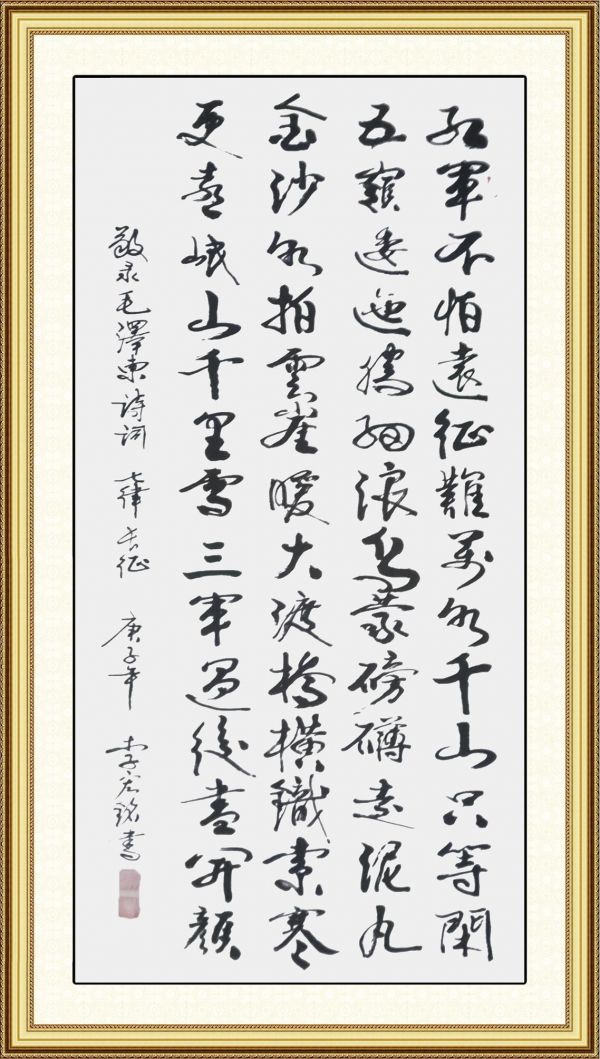 红軍不怕遠征難萬水千山只等閑
五嶺逶迤騰細浪烏蒙磅礴走泥丸
金沙水拍雲崖暖大渡橋橫鐵索寒
更喜岷山千里雪三軍過後盡開顏
敬录毛澤東诗词 七律长征 庚子年 李宏銘書